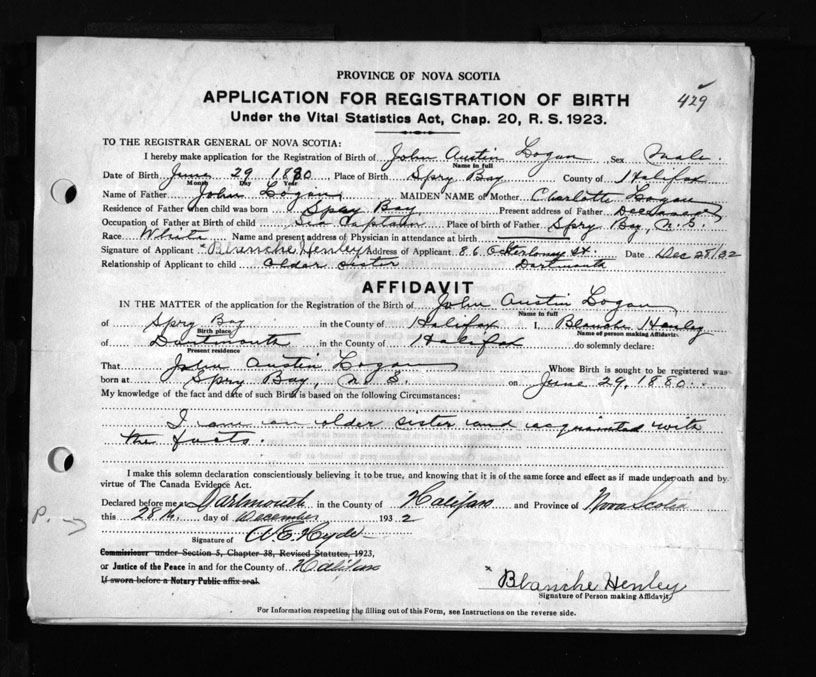 PROVINCE OF NOVA SCOTIA
APPLICATION FOR REGISTRATION OF BIRTH
429
Under the Vital Statistics Act, Chap. 20, R. S. 1923.
TO THE REGISTRAR GENERAL OF NOVA SCOTIA:
I hereby make application for the Registration of Birth of John Austin Logan Sex Male
Name in full
Date of Birth June 29 1880 Place of Birth Spry Bay County of Halifax
Month Day Year
Name of Father John Logan MAIDEN NAME of Mother Charlotte Logan
Residence of Father when child was born Spry Bay Present address of Father Deceased
Occupation of Father at Birth of child Sea Captain Place of birth of Father Spry Bay, N.S.
Race White Name and present address of Physician in attendance at birth
Signature of Applicant Blanche Henley Address of Applicant 86 Ochterloney St. Date Dec 28/32
Relationship of Applicant to child older sister Dartmouth
AFFIDAVIT
IN THE MATTER of the application for the Registration of the Birth of John Austin Logan
Name in full
of Spry Bay in the County of Halifax I, Blanche Henley
Birth place Name of person making Affidavit
of Dartmouth in the County of Halifax do solemnly declare:
Present residence
That John Austin Logan Whose Birth is sought to be registered was
born at Spry Bay, N.S. on June 29, 1880.
My knowledge of the fact and date of such Birth is based on the following Circumstances:
I am an older sister and acquainted with
the facts.
I make this solemn declaration conscientiously believing it to be true, and knowing that it is of the same force and effect as if made under oath and by
virtue of The Canada Evidence Act.
Declared before me at Dartmouth in the County of Halifax and Province of Nova Scotia
P. →
this 28th day of December 1932
Signature of W.E. Hyde
Commissioner under Section 5, Chapter 38, Revised Statutes, 1923,
or Justice of the Peace in and for the County of Halifax
If sworn before a Notary Public affix seal.
x Blanche Henley
Signature of Person making Affidavit
For Information respecting the filling out of this Form, see Instructions on the reverse side.